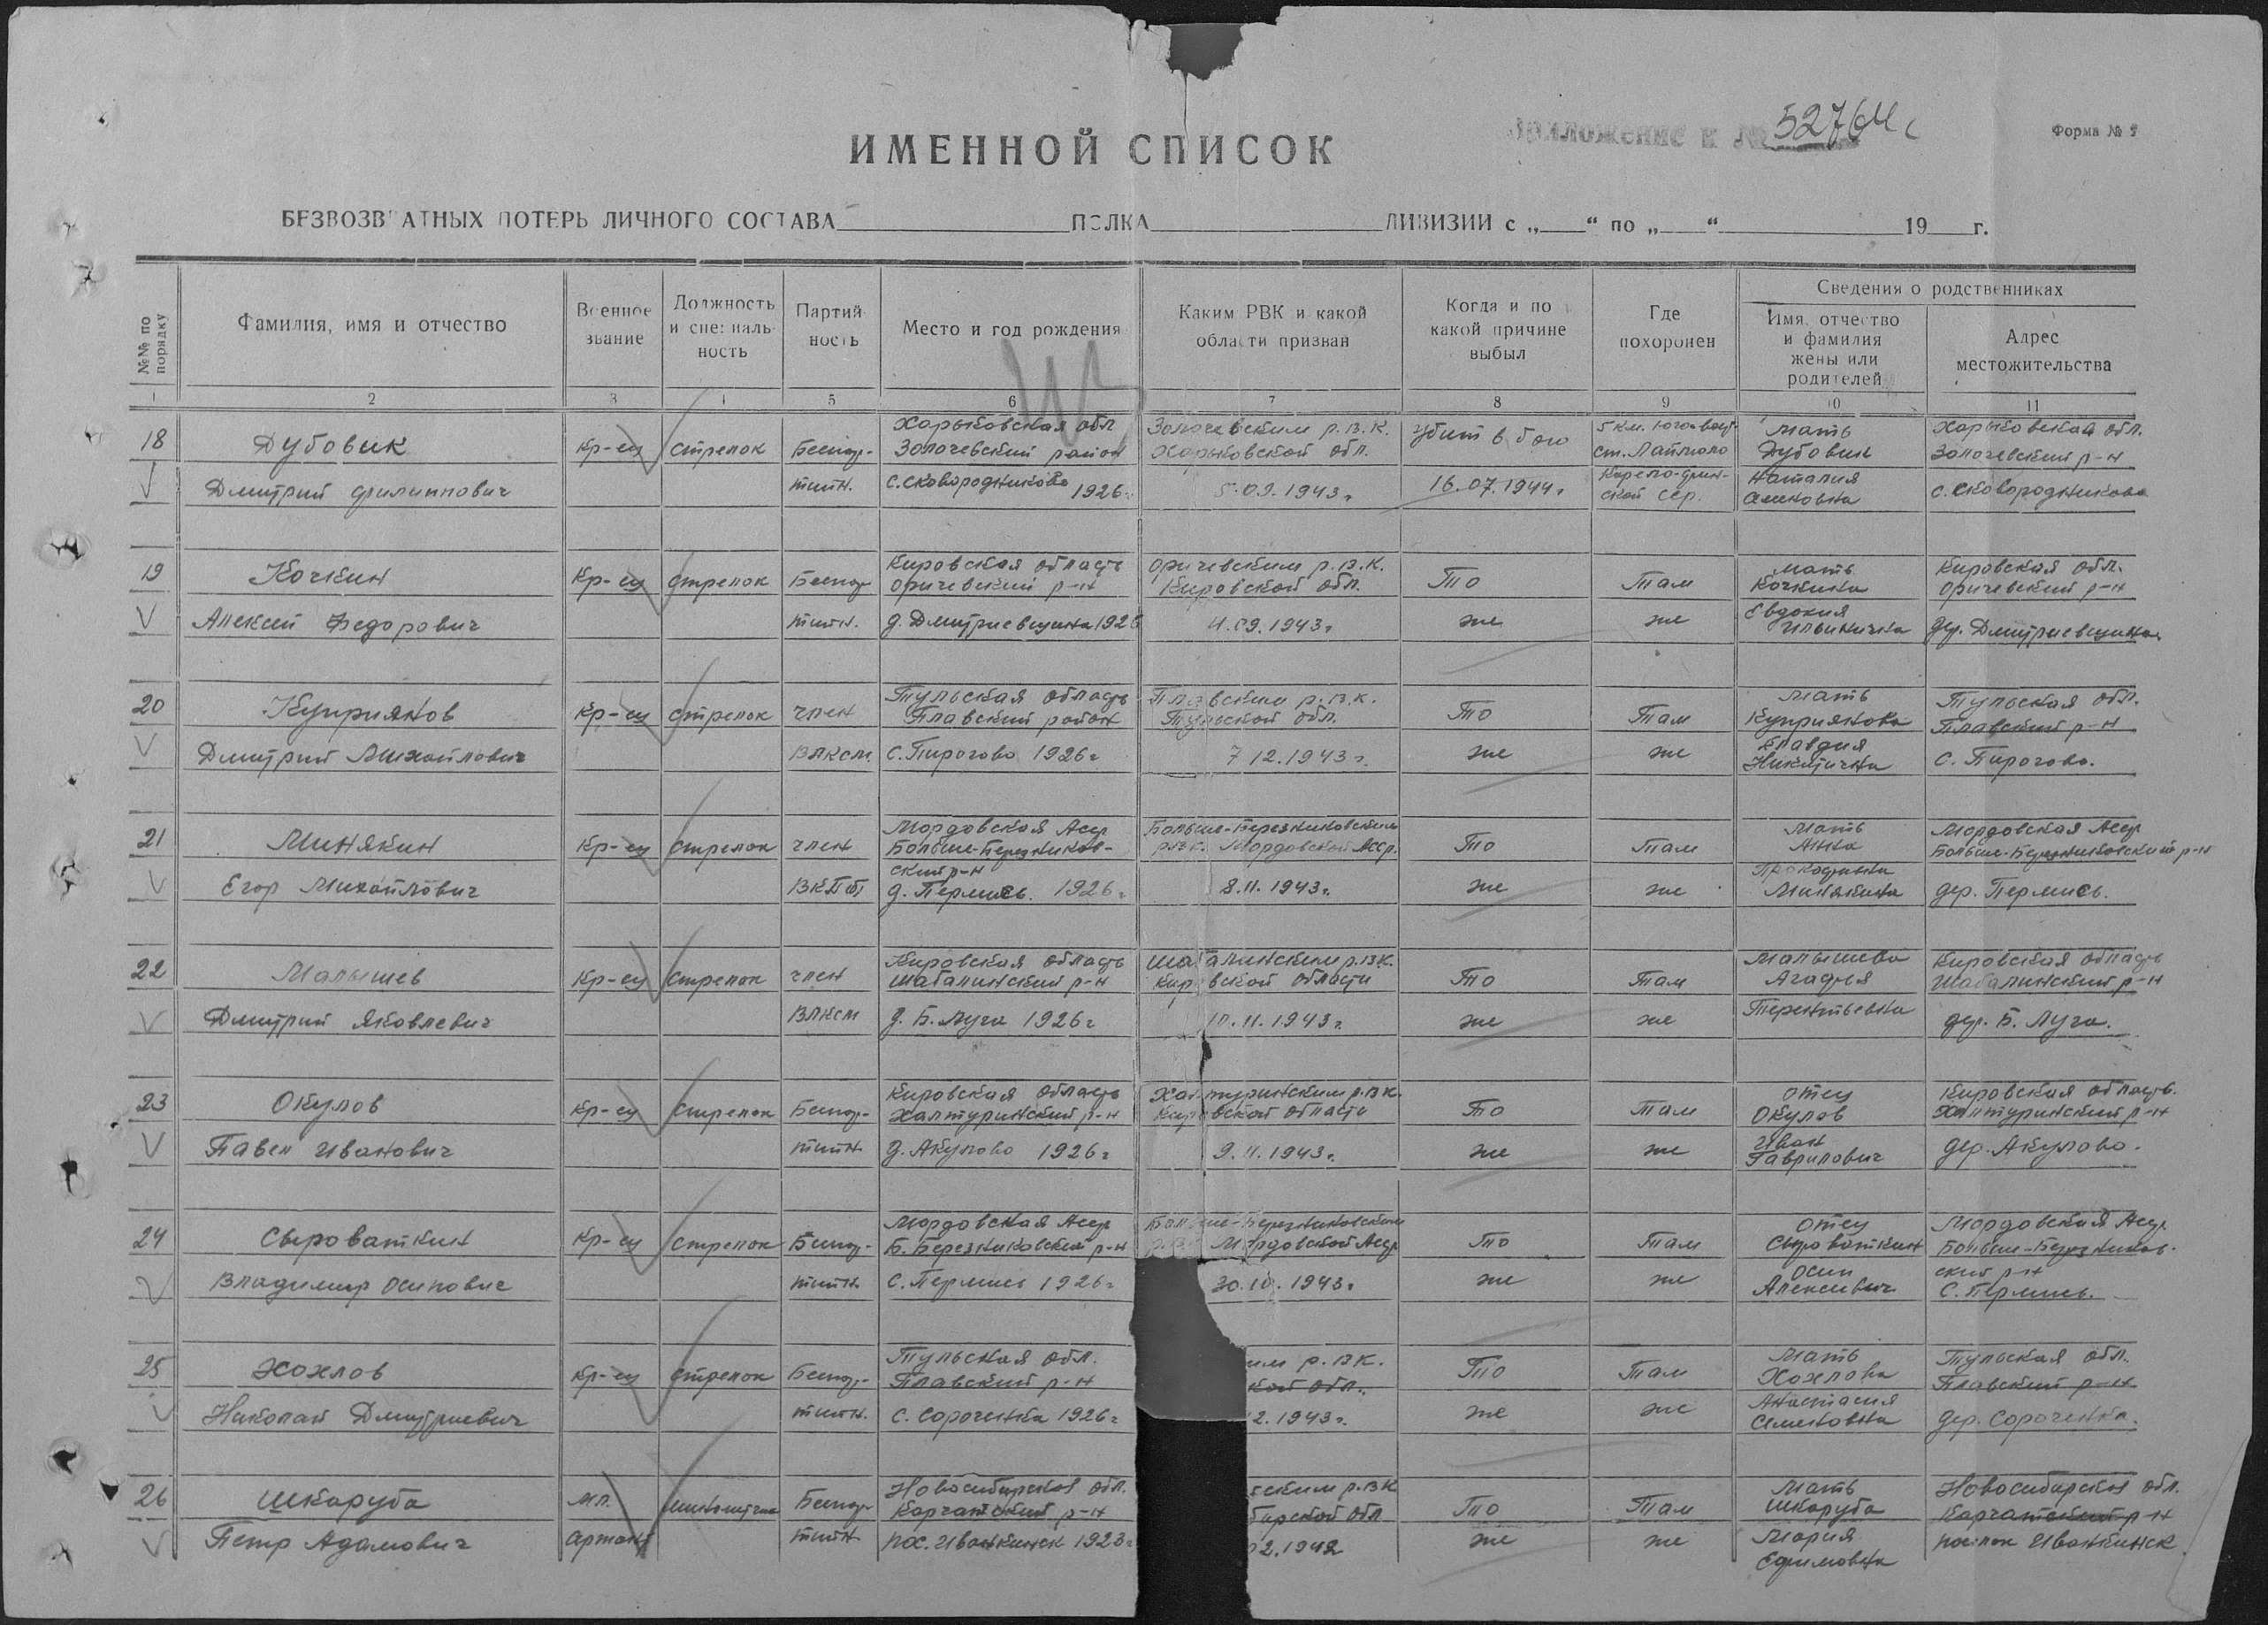 Приложение к № 52764с
Форма № 2
ИМЕННОЙ СПИСОК
БЕЗВОЗВРАТНЫХ ПОТЕРЬ ЛИЧНОГО СОСТАВА ПОЛКА ДИВИЗИИ с „ “ по „ “ 19 г.
№№ по порядку
Фамилия, имя и отчество
Военное звание
Должность и специальность
Партийность
Место и год рождения
Каким РВК и какой области призван
Когда и по какой причине выбыл
Где похоронен
Сведения о родственниках
Имя, отчество и фамилия жены или родителей
Адрес местожительства
1 2 3 4 5 6 7 8 9 10 11
18 Дубовик
Дмитрий Филиппович
Кр-ец
стрелок
Беспар-
тийн.
Харьковская обл
Золочевский район
с. Сковородниково 1926г
Золочевским р.в.к.
Харьковской обл.
5.09.1943г
Убит в бою
16.07.1944г
5 км. юго-вост.
ст. Лаймоло
Карело-фин-
ской сср.
Мать
Дубовик
Наталия
Семеновна
Харьковская обл.
Золочевский р-н
с. Сковородниково
19 Кочкин
Алексей Федорович
Кр-ец
стрелок
Беспар
тийн.
Кировская область
Оричевский р-н
д. Дмитриевщина 1926
Оричевским р.в.к.
Кировской обл.
11.09.1943г
То
же
Там
же
мать
Кочкина
Евдокия
Ильинична
Кировская обл.
Оричевский р-н
дер. Дмитриевщина
20 Куприянов
Дмитрий Михайлович
Кр-ец
стрелок
член
ВЛКСМ
Тульская область
Плавский район
с. Пирогово 1926г
Плавским р.в.к.
Тульской обл.
7 12.1943г.
То
же
Там
же
Мать
Куприянова
Клавдия
Никитична
Тульская обл.
Плавский р-н
с. Пирогово.
21 Минякин
Егор Михайлович
Кр-ец
стрелок
член
ВКПб
Мордовская Асср
Больше-Березников-
ский р-н
д. Пермесь. 1926г
Больше-Березниковским
рвк. Мордовской Асср.
8.11.1943г.
То
же
Там
же
Мать
Анна
Прокофьевна
Минякина
Мордовская Асср
Больше-Березниковский р-н
дер. Пермесь.
22 Малышев
Дмитрий Яковлевич
Кр-ец
стрелок
член
ВЛКСМ
Кировская область
Шабалинский р-н
д. Б. Луга 1926г
Шабалинским р.в.к.
Кировской области
10.11.1943г.
То
же
Там
же
Малышева
Агафья
Терентьевна
Кировская область
Шабалинский р-н
дер. Б. Луга.
23 Окулов
Павел Иванович
Кр-ец
стрелок
Беспар-
тийн
Кировская область
Халтуринский р-н
д. Акулово 1926г
Халтуринским р.в.к.
Кировской области
9.11.1943г.
То
же
Там
же
Отец
Окулов
Иван
Гаврилович
Кировская область.
Халтуринский р-н
дер. Акулово.
24 Сыроваткин
Владимир Осипович
Кр-ец
стрелок
Беспар-
тийн.
Мордовская Асср
Б. Березниковский р-н
С. Пермись 1926г
Больше-Березниковским
р.в.к. Мордовской Асср
30.10.1943г.
То
же
Там
же
Отец
Сыроваткин
Осип
Алексеевич
Мордовская Асср
Больше-Березников-
ский р-н
С. Пермись.
25 Хохлов
Николай Дмитриевич
Кр-ец
стрелок
Беспар-
тийн.
Тульская обл.
Плавский р-н
с. Сороченка 1926г
им р.в.к.
кой обл.
2.1943г.
То
же
Там
же
Мать
Хохлова
Анастасия
Семеновна
Тульская обл.
Плавский р-н
дер. Сороченка.
26 Шкаруба
Петр Адамович
мл.
сержант
минометчик
Беспар
тийн
Новосибирская обл.
Каргатский р-н
пос. Иванкинск 1923г
ским р.в.к
бирской обл
02.1942
То
же
Там
же
Мать
Шкаруба
Мария
Ефимовна
Новосибирская обл.
Каргатский р-н
поселок Иванкинск